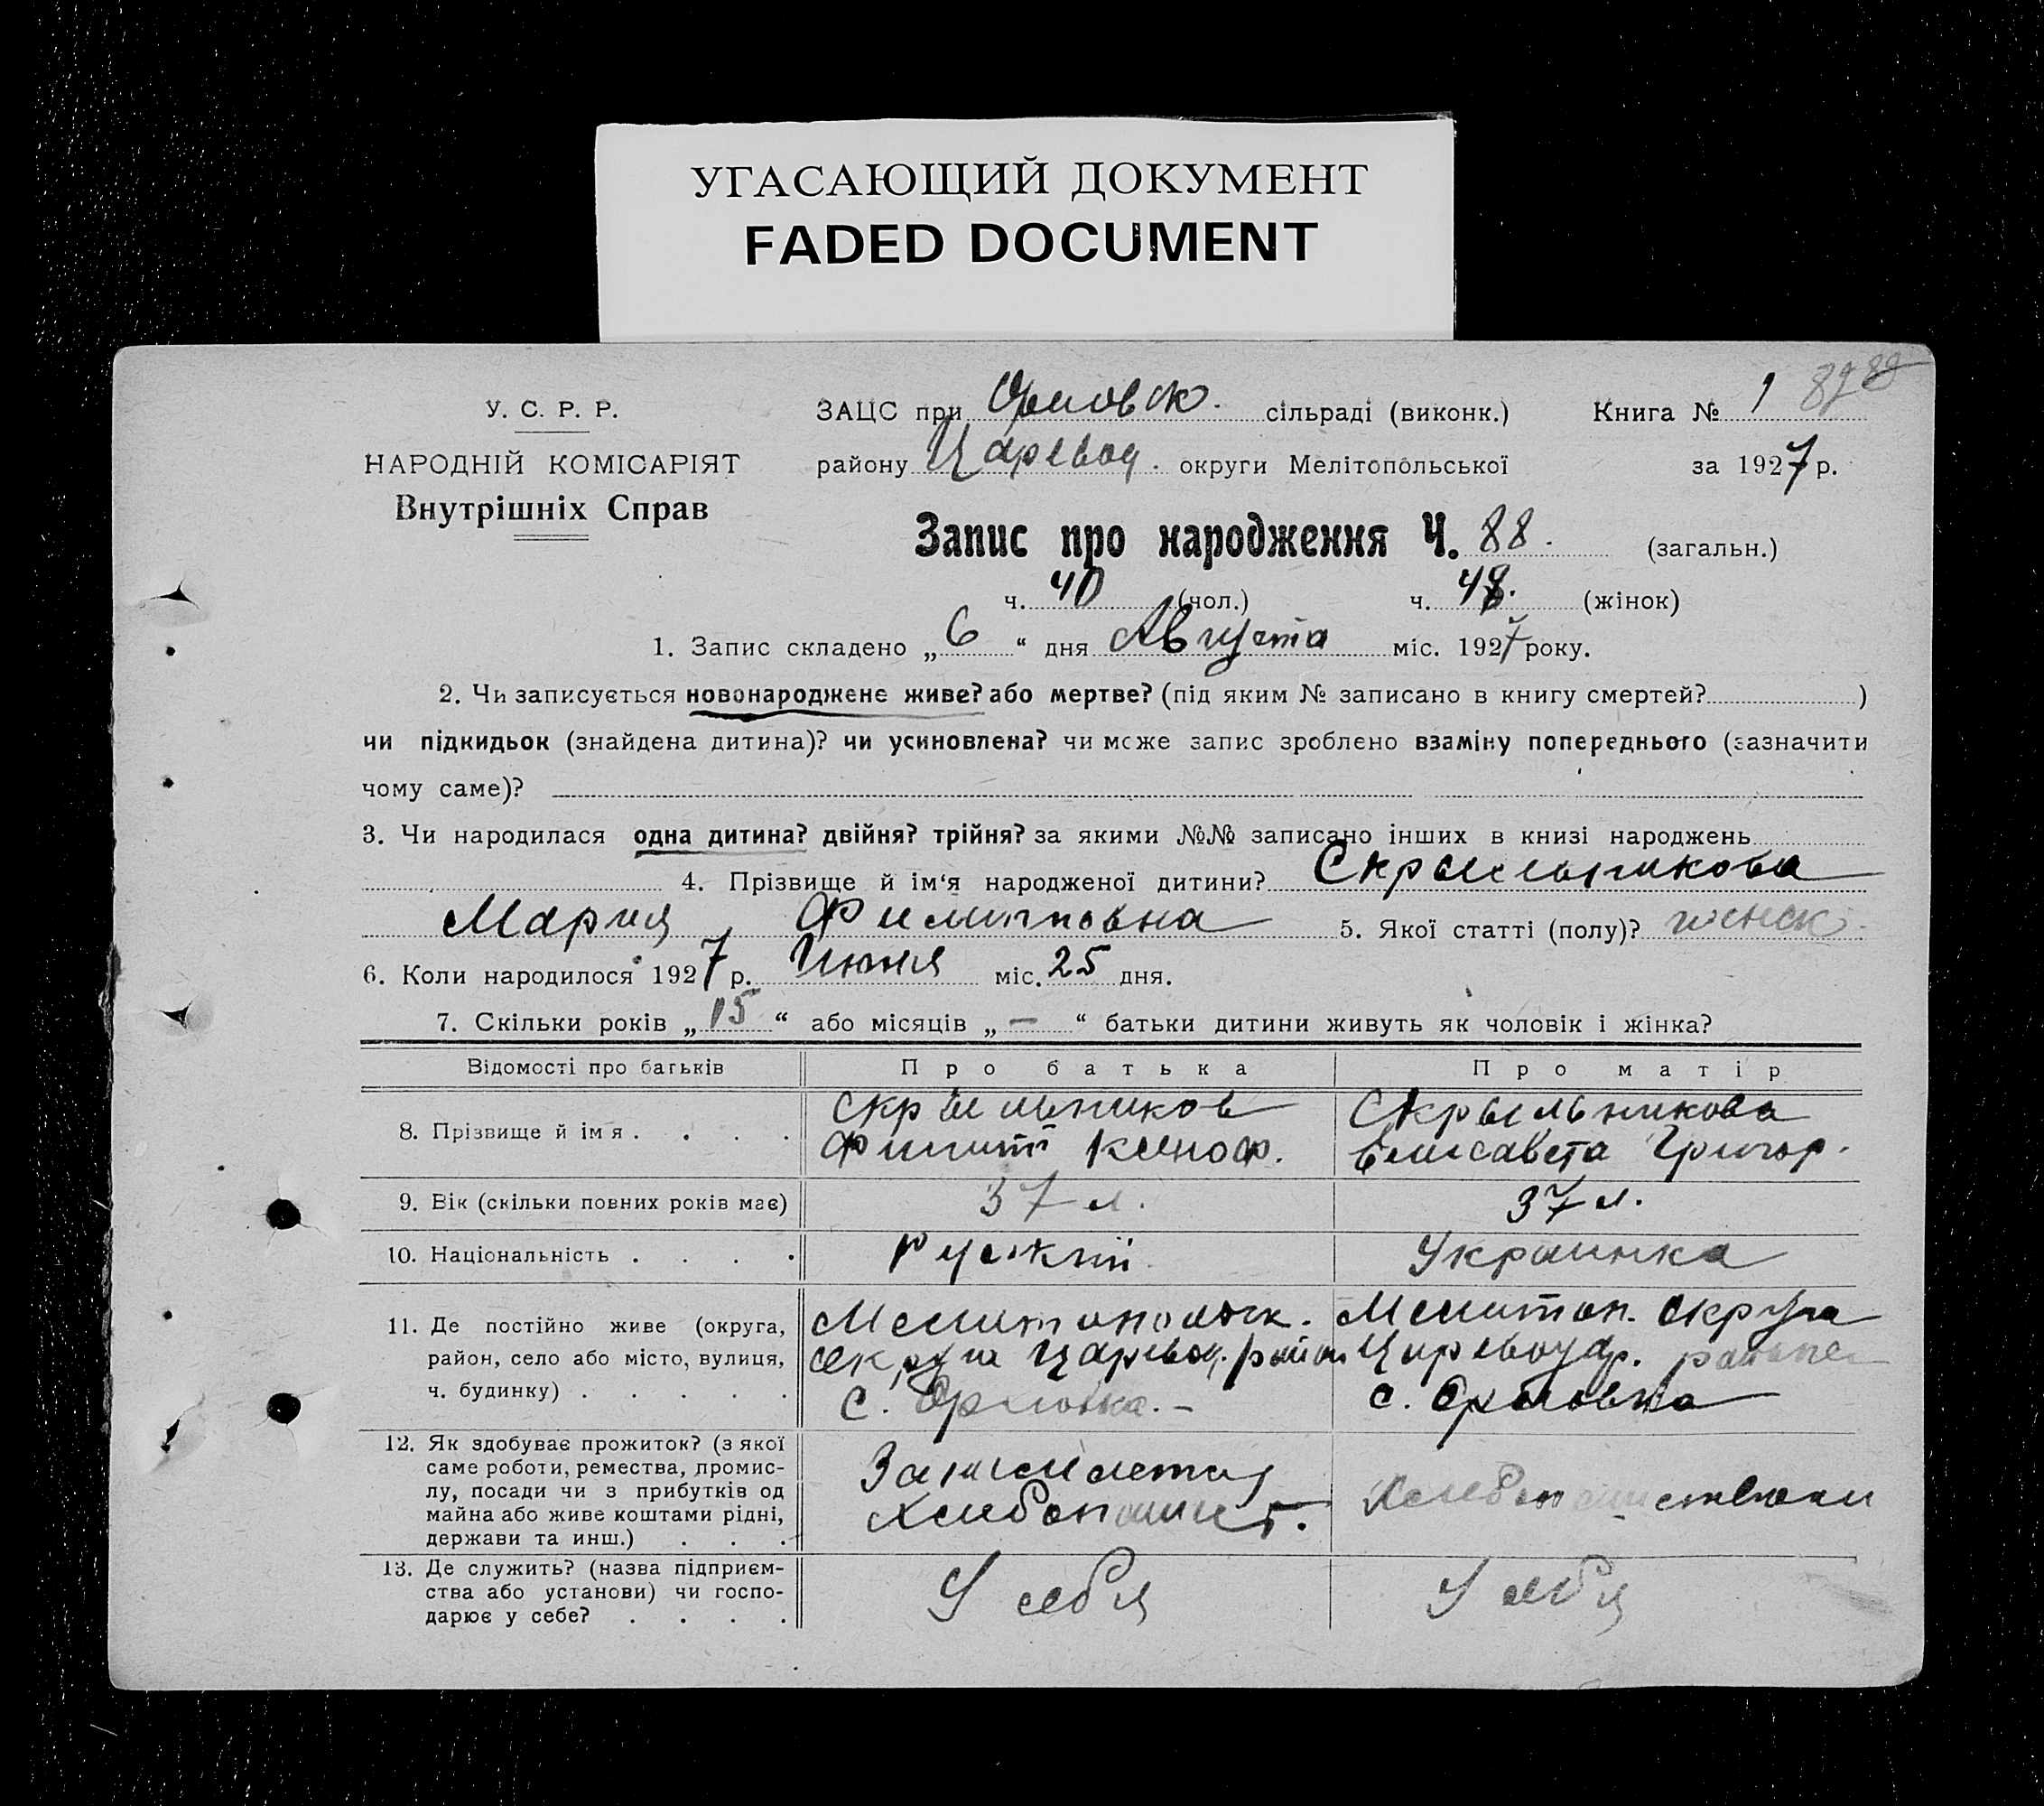 УГАСАЮЩИЙ ДОКУМЕНТ
FADED DOCUMENT
У. С. Р. Р.
НАРОДНІЙ КОМІСАРІЯТ
Внутрішніх Справ
ЗАЦС при Орловск. сільраді (виконк.) Книга № 1
району Царевод. округи Мелітопольської за 1927 р.
Запис про народження Ч. 88. (загальн.)
ч. 40 (чол.) ч. 48. (жінок)
1. Запис складено „6“ дня Августа міс. 1927 року.
2. Чи записується новонароджене живе? або мертве? (під яким № записано в книгу смертей? )
чи підкидьок (знайдена дитина)? чи усиновлена? чи може запис зроблено взаміну попереднього (зазначити
чому саме)?
3. Чи народилася одна дитина? двійня? трійня? за якими №№ записано інших в книзі народжень
4. Прізвище й ім‘я народженої дитини? Скрыльникова
Мария Филипповна 5. Якої статті (полу)? женск.
6. Коли народилося 1927 р. Июня міс. 25 дня.
7. Скільки років „15“ або місяців „—“ батьки дитини живуть як чоловік і жінка?
Відомості про батьків Про батька Про матір
8. Прізвище й імя . . . . Скрыльников Филипп Ксеноф. Скрыльникова Елисавета Григор.
9. Вік (скільки повних років має) 37 л. 37 л.
10. Національність . . . . Русский Украинка
11. Де постійно живе (округа, Мелитопольск. Мелитоп. округа
район, село або місто, вулиця, округа Царевод. район Царевод. района
ч. будинку) . . . . . с. Орловка. – с. Орловка
12. Як здобуває прожиток? (з якої
саме роботи, ремества, промис-
лу, посади чи з прибутків од
майна або живе коштами рідні,
держави та инш.) . . .
13. Де служить? (назва підприєм-
ства або установи) чи госпо- У себя У себя
дарює у себе? . . . .